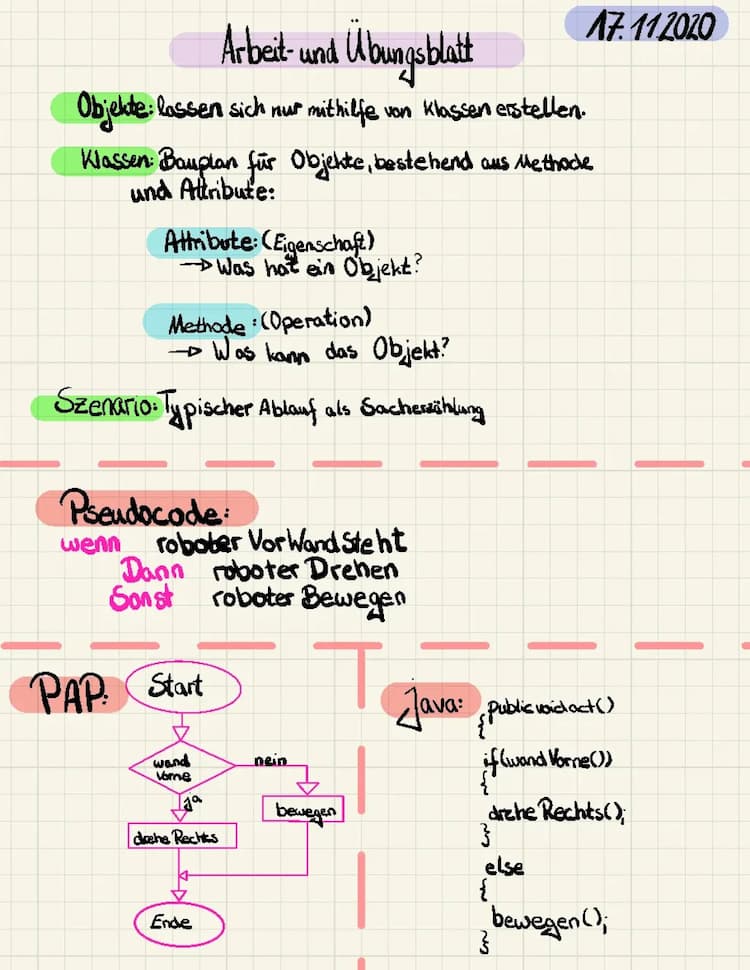 17.11.2020
Arbeit- und Übungsblatt
Objekte: lassen sich nur mithilfe von Klassen erstellen.
Klassen: Bauplan für Objekte, bestehend aus Methode
und Attribute:
Attribute: (Eigenschaft)
→ Was hat ein Objekt?
Methode: (Operation)
→ Was kann das Objekt?
Szenario: Typischer Ablauf als Sacherzählung
Pseudocode:
wenn roboter Vor Wand Steht
Dann roboter Drehen
Sonst roboter Bewegen
PAP:
Start
wand
Vorne
nein
ja
bewegen
drehe Rechts
Ende
Java:
public void act()
{
if(wand Vorne())
{
drehe Rechts();
}
else
{
bewegen();
}